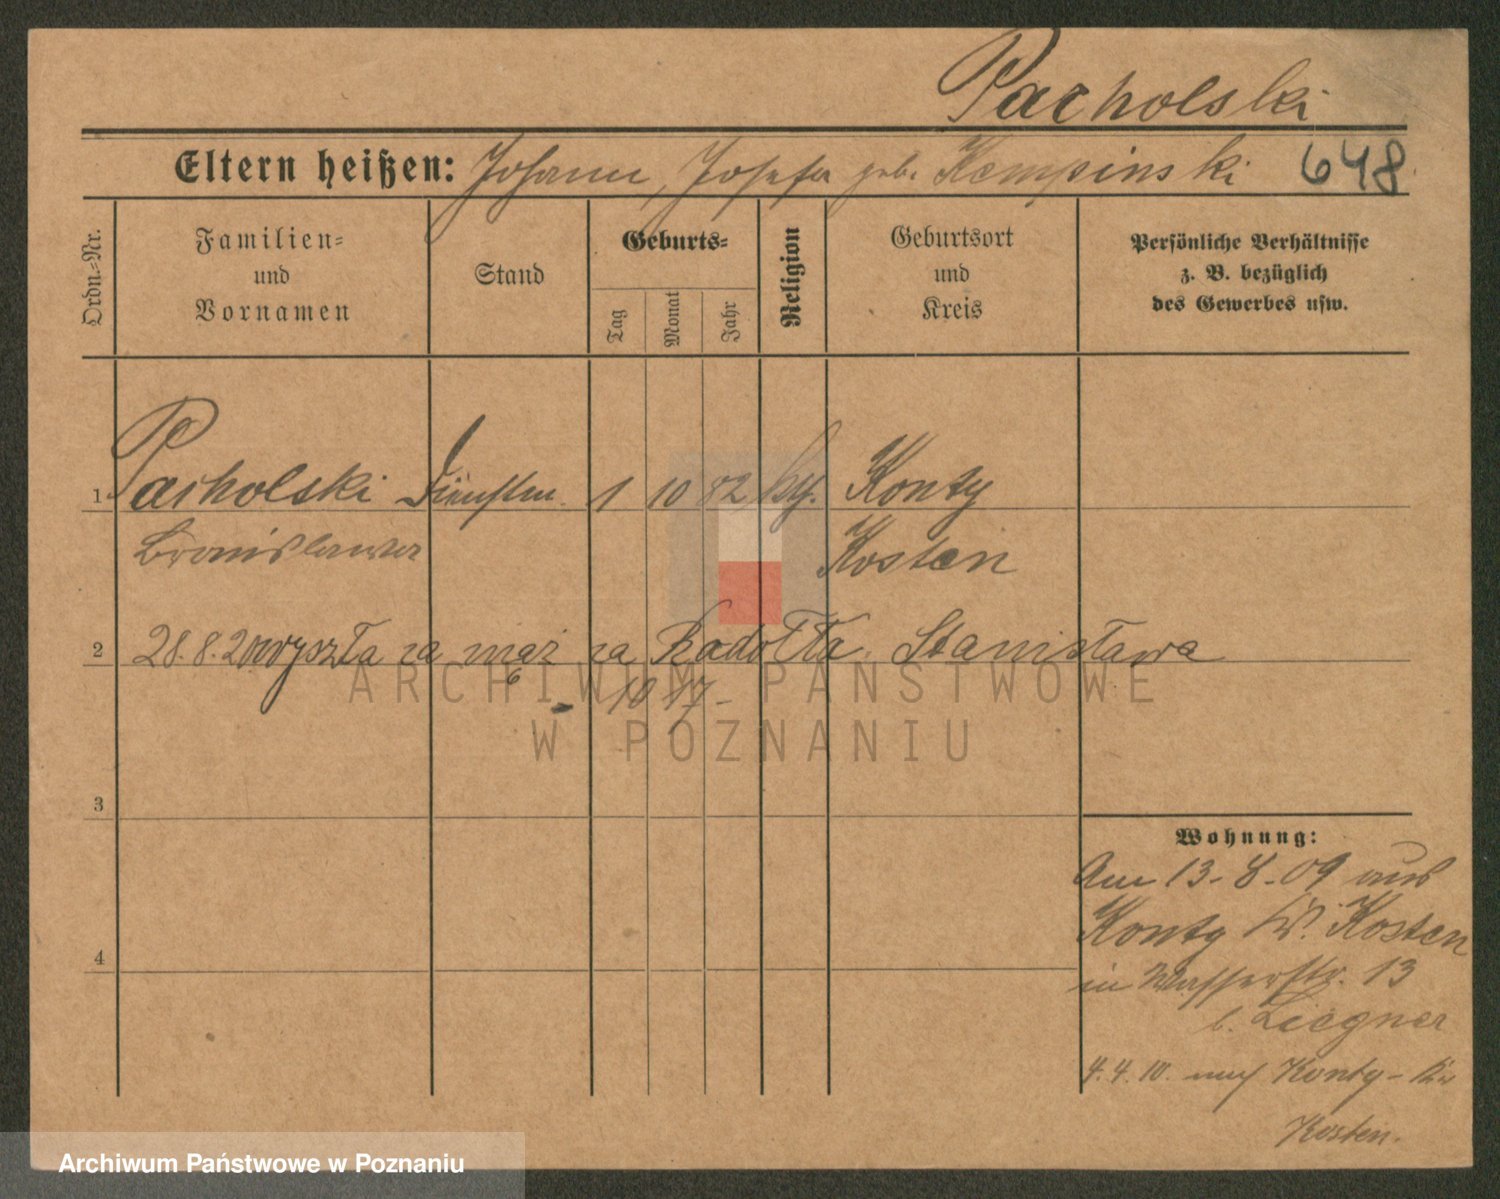 Pacholski
Eltern heißen: Johann, Josefa geb. Kempinski 648
Ordn.-Nr.
Familien-
und
Vornamen
Stand
Geburts-
Tag
Monat
Jahr
Religion
Geburtsort
und
Kreis
Persönliche Verhältnisse
z. B. bezüglich
des Gewerbes usw.
1 Pacholski Dienstm. 1 10 82 kth. Konty
Bronislawa Kosten
2 28.8.20 wyszła za mąż za Radołła Stanisława
6 10 17 -
3
4
Wohnung:
Am 13-8-09 aus
Konty Kr. Kosten
in Wasserstr. 13
b. Liegner
4.4.10. nach Konty - Kr
Kosten.
ARCHIWUM PAŃSTWOWE
W POZNANIU
Archiwum Państwowe w Poznaniu